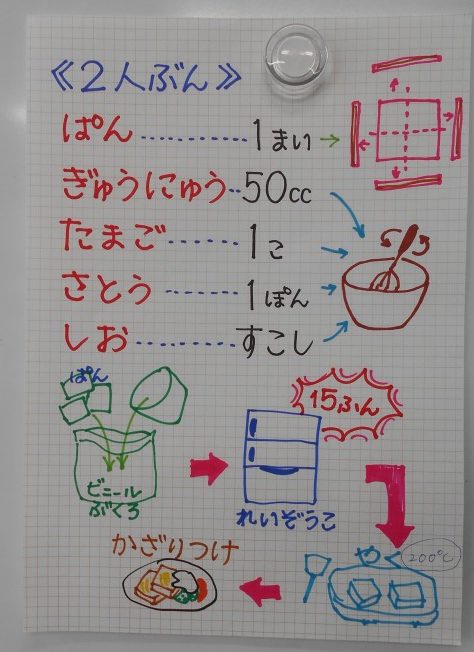 《2人ぶん》
ぱん………… 1まい
ぎゅうにゅう… 50cc
たまご…… 1こ
さとう…… 1ぽん
しお………… すこし
ぱん
ビニール
ぶくろ
15ふん
れいぞうこ
やく 200℃
かざりつけ